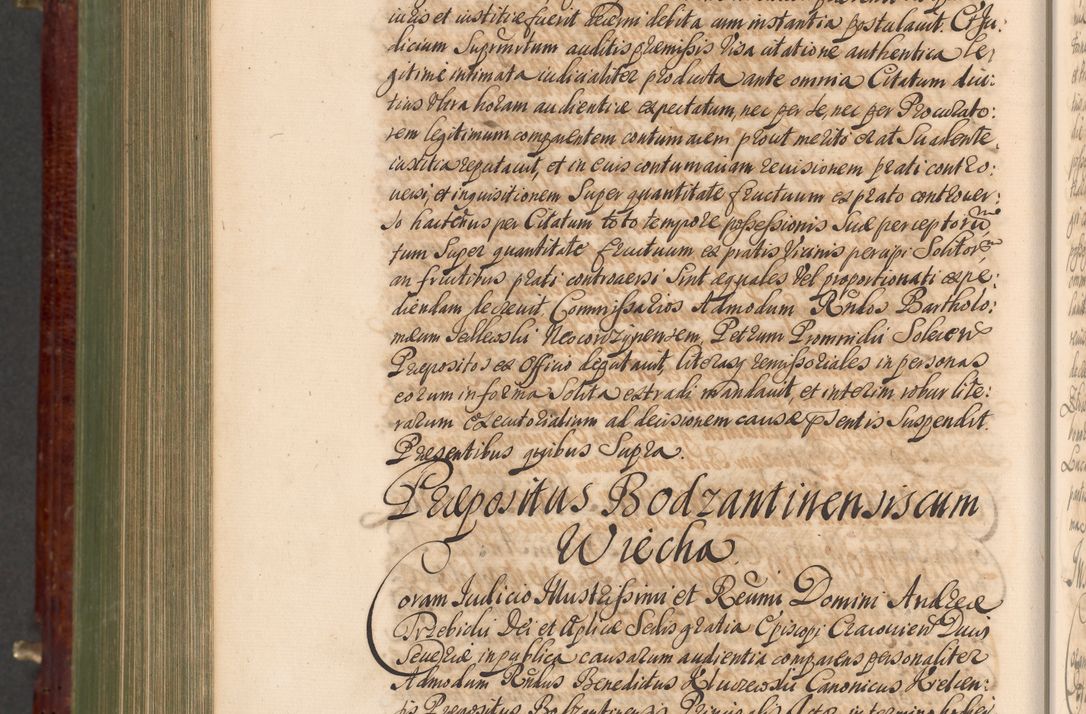 iuris et iustitiæ fuerit decerni debita cum instantia postulauit. Et Ju:
dicium Supruitum auditis præmissis Visa citatione authentica le:
gitime intimata iudicialiter producta ante omnia Citatum diu:
tius Vltra horam audientiæ expectatum, nec per se, nec per Procurato:
rem legitimum comparentem contumacem prout merito erat Suadente
iustitia reputauit, et in eius contumaciam reuisionem prati contro:
uersi, et inquisitionem Super quantitate fructuum ex prato controuer:
so hactenus per Citatum toto tempore possessionis Suæ perceptorũ
tum Super quantitate fructuum ex pratis Vicinis percipi Solitorũ
an fructibus prati controuersi sint æquales Vel proportionati expe:
diendam decreuit, Commissarios Admodum Rñdos Bartholo:
mæum Jedlewski Neocorzynensem, Petrum Promnidii
Præpositos ex Officio deputauit, literasq remissoriales in personas
eorum in forma Solita extradi mandauit, et interim robur lite:
rarum Executorialium ad decisionem causæ pñsentis Suspendit.
Præsentibus quibus Supra.
Præpositus Bodzantinensis cum
Wiecha.
Coram Judicio Illustrissimi et Reuími Domini Andreæ
Trzebicki Dei et Aplicæ Sedis gratia Episcopi Cracouien Ducis
Seueriæ in publica causarum audientia comparens personaliter
Admodum Rñdus Benedictus Kluszewski Canonicus Kielcen:
sis Præpositus Bodzantinensis Principalis Actor in termino hodier